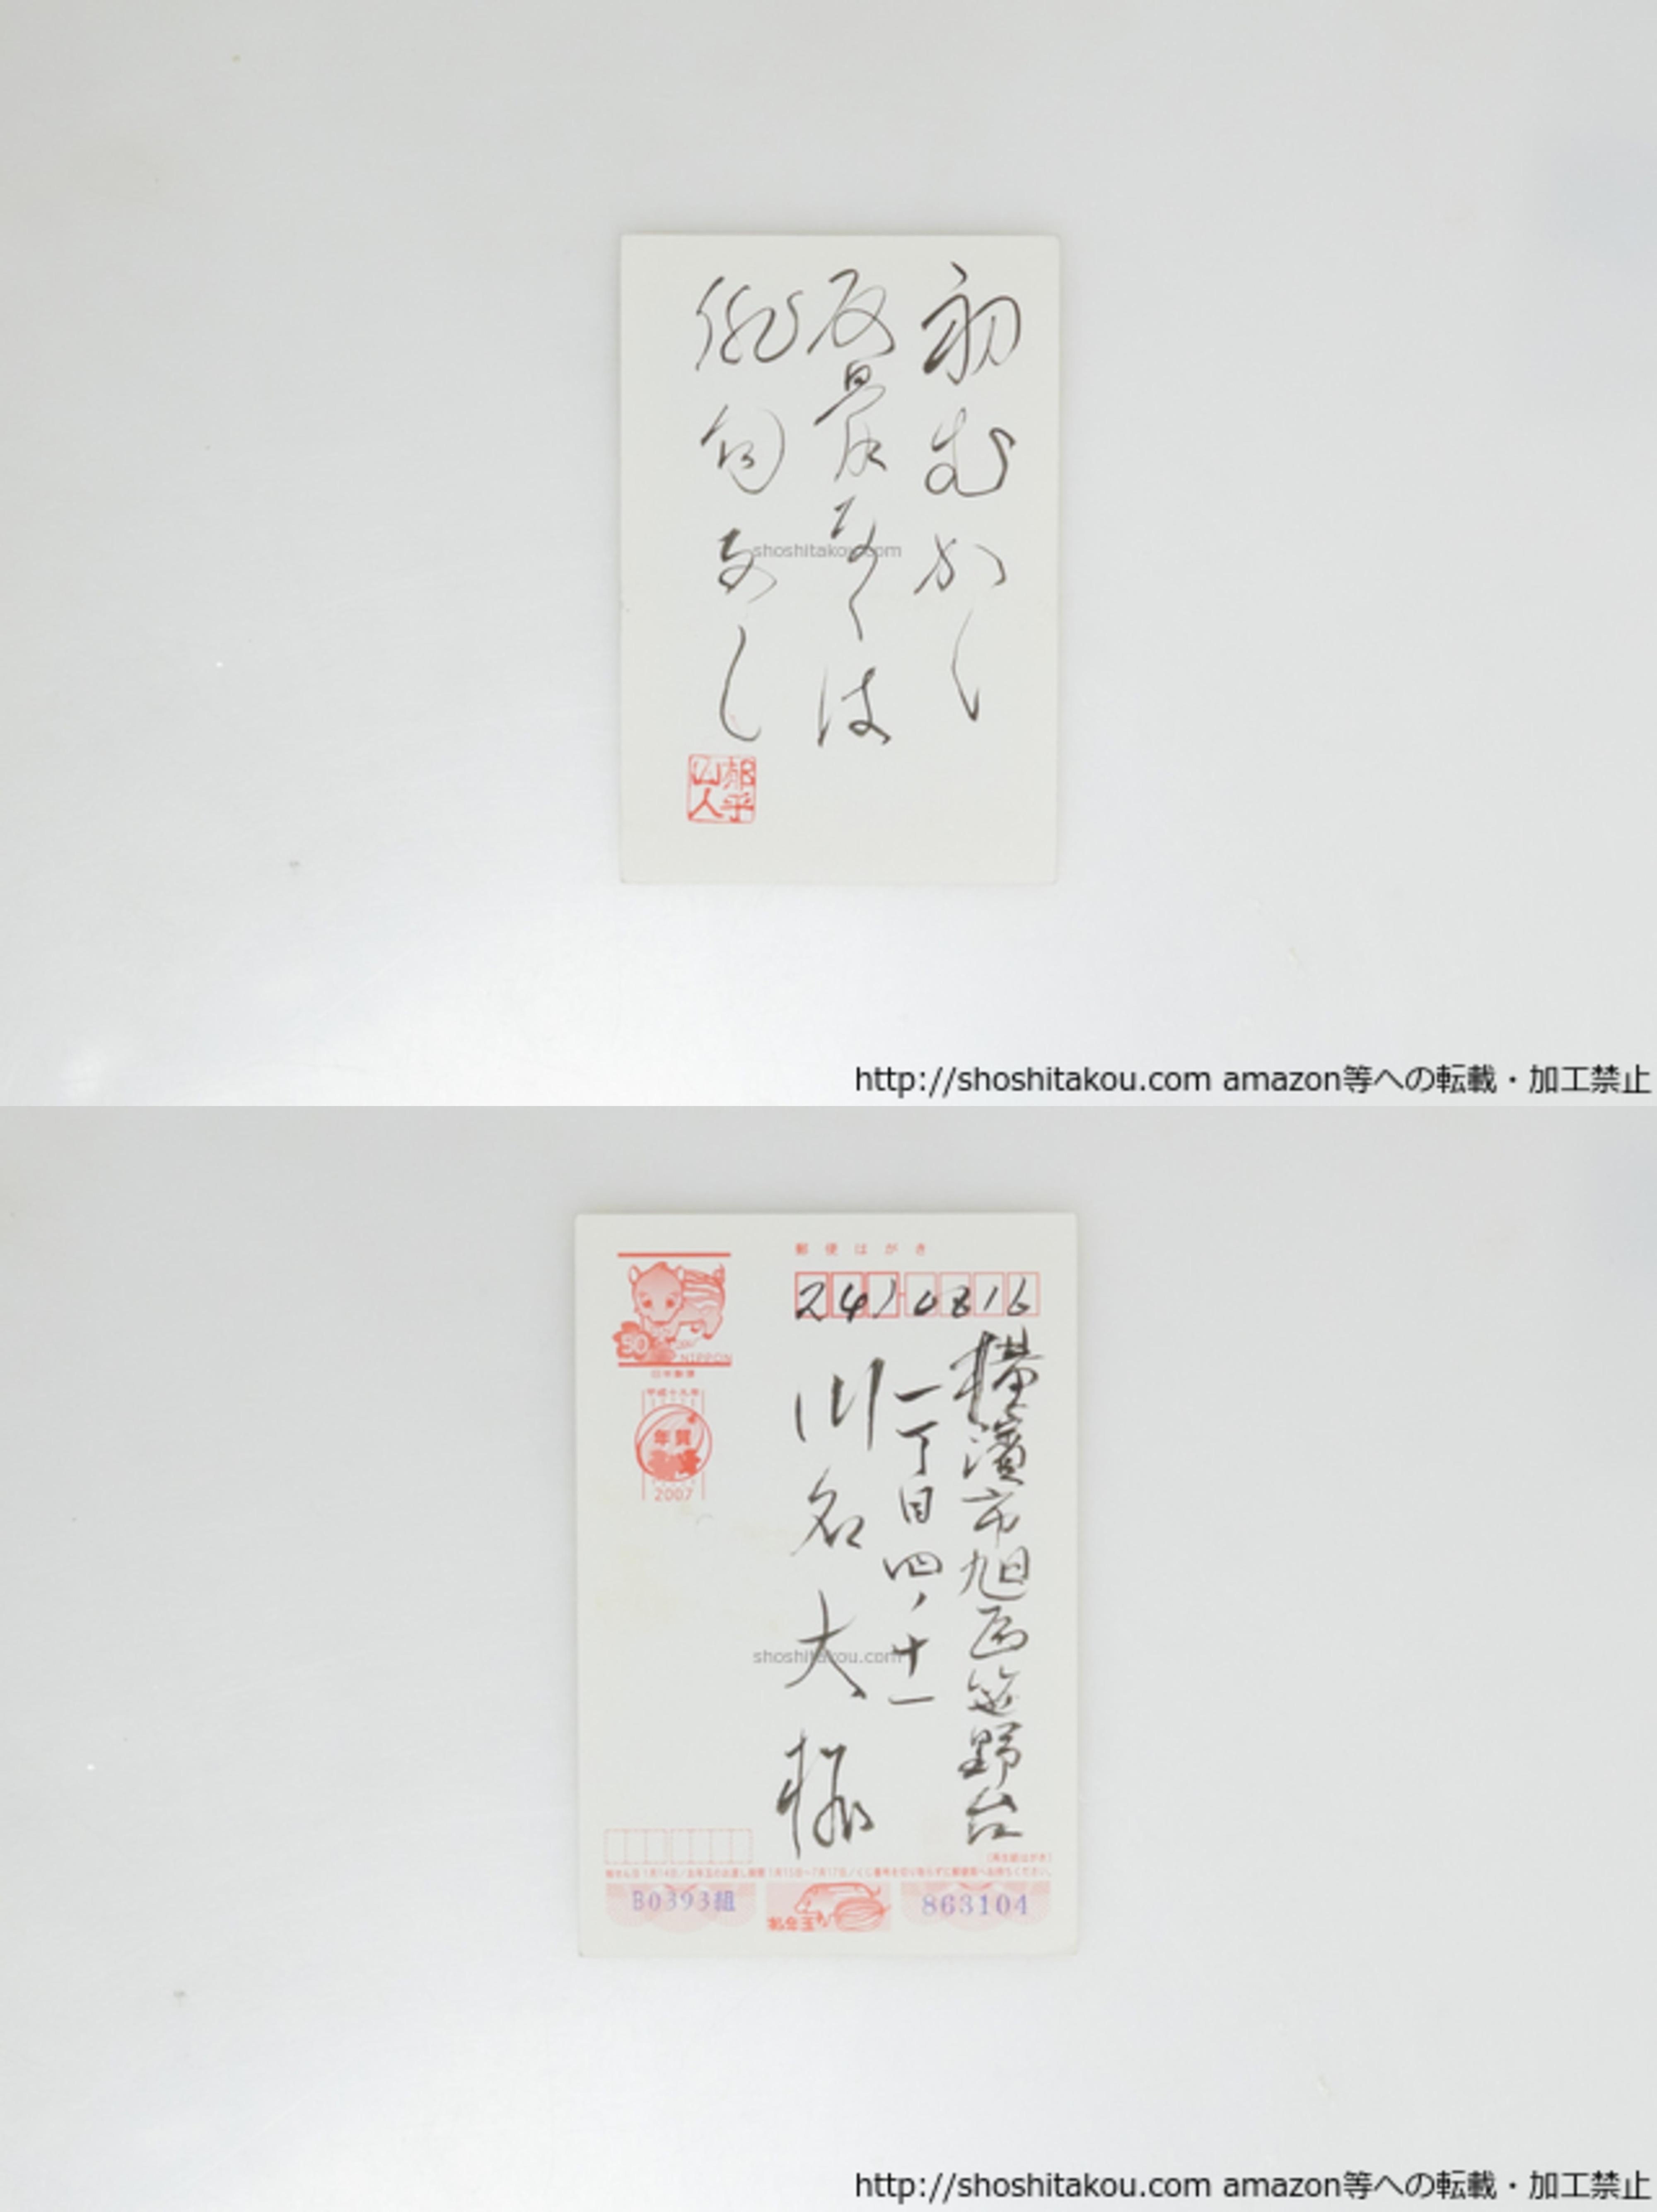 初むかし
反骨なくは
俳句なし
shoshitakou.com
http://shoshitakou.com amazon等への転載・加工禁止
郵便はがき
241-0816
横濱市旭区笹野台
一丁目四ノ十一
川名大様
50
NIPPON
日本郵便
平成十九年
年賀
2007
shoshitakou.com
(再生紙はがき)
B0393組
お年玉
863104
http://shoshitakou.com amazon等への転載・加工禁止